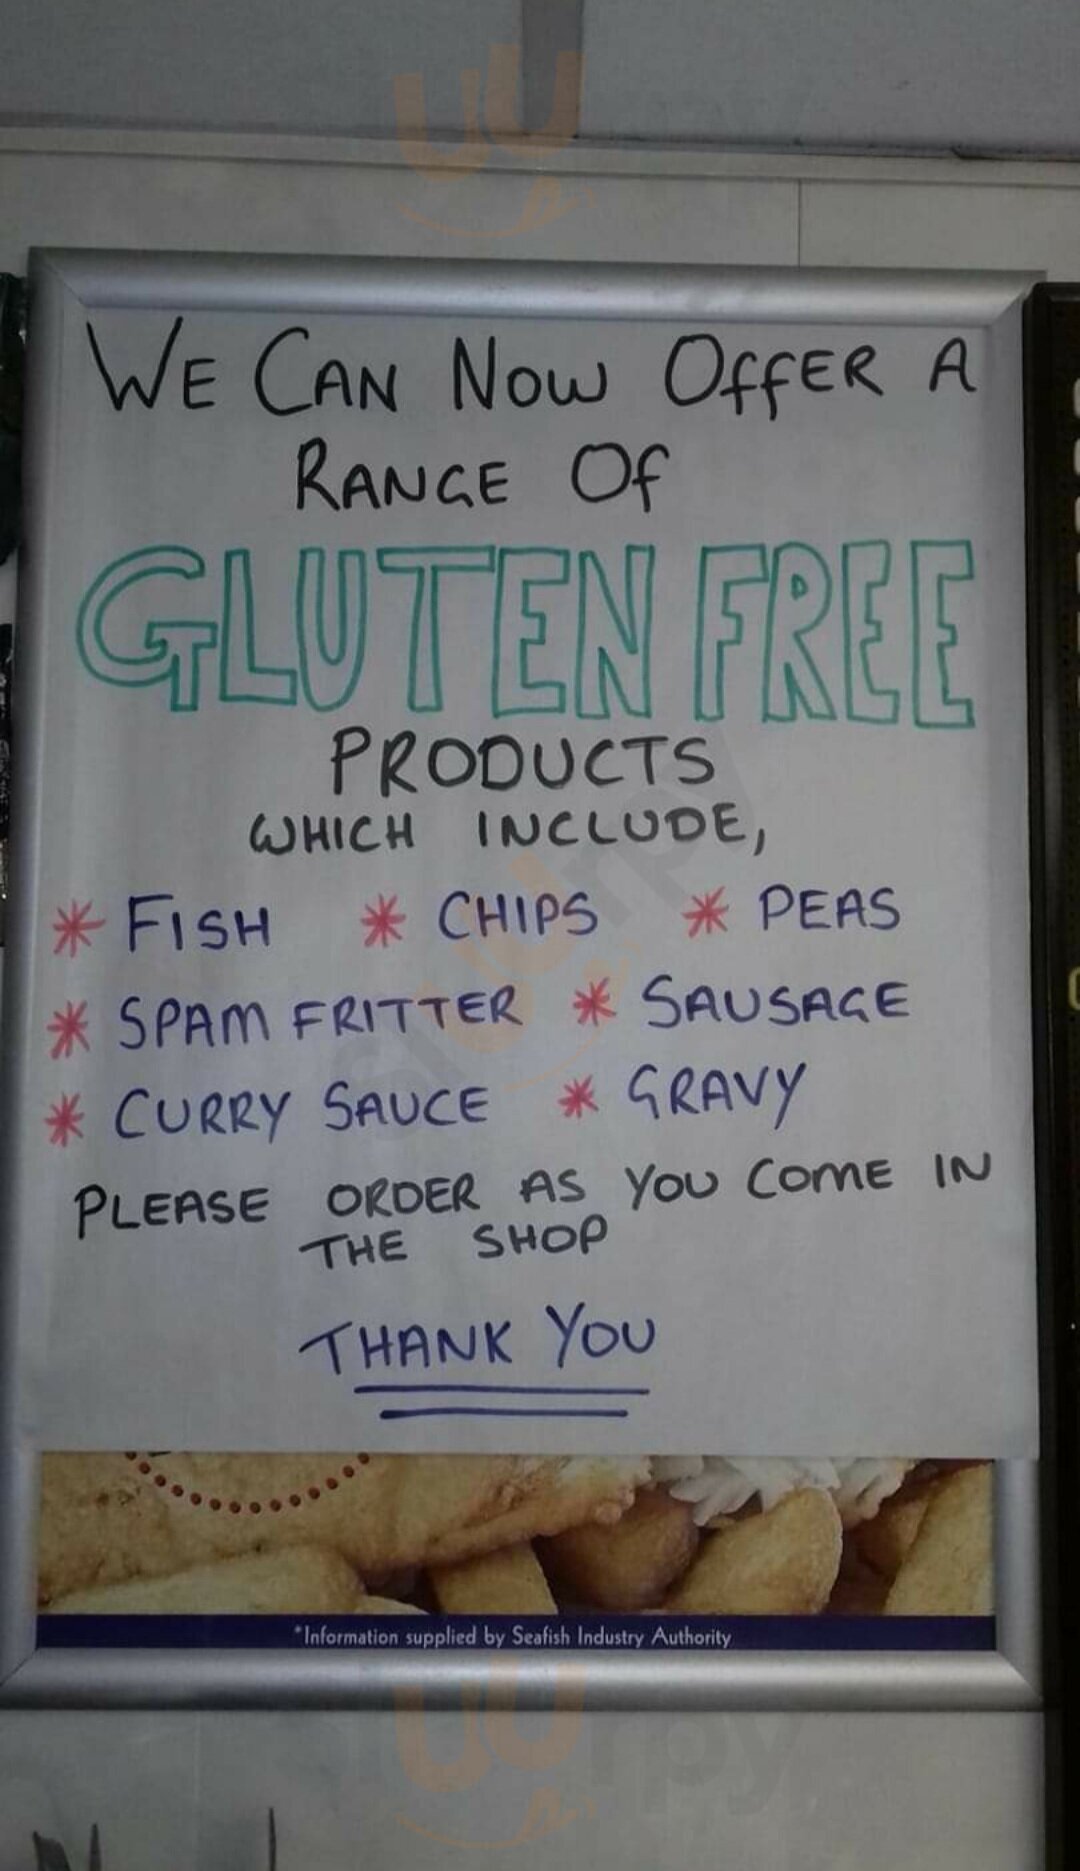 WE CAN NOW OFFER A
RANGE OF
GLUTEN FREE
PRODUCTS
WHICH INCLUDE,
* FISH * CHIPS * PEAS
* SPAM FRITTER * SAUSAGE
* CURRY SAUCE * GRAVY
PLEASE ORDER AS YOU COME IN
THE SHOP
THANK YOU
*Information supplied by Seafish Industry Authority